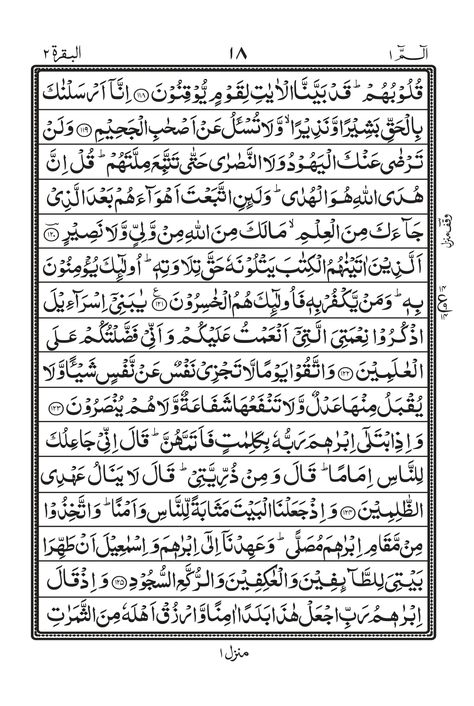 الٓمّٓ ۱ ۱۸ البقرة ۲
قُلُوْبُهُمْ ؕ قَدْ بَيَّنَّا الْاٰيٰتِ لِقَوْمٍ يُّوْقِنُوْنَ ﴿۱۱۸﴾ اِنَّاۤ اَرْسَلْنٰكَ
بِالْحَقِّ بَشِيْرًا وَّنَذِيْرًا ۙ وَّلَا تُسْـَٔلُ عَنْ اَصْحٰبِ الْجَحِيْمِ ﴿۱۱۹﴾ وَلَنْ
تَرْضٰى عَنْكَ الْيَهُوْدُ وَلَا النَّصٰرٰى حَتّٰى تَتَّبِعَ مِلَّتَهُمْ ؕ قُلْ اِنَّ
هُدَى اللّٰهِ هُوَ الْهُدٰى ؕ وَلَئِنِ اتَّبَعْتَ اَهْوَآءَهُمْ بَعْدَ الَّذِيْ
جَآءَكَ مِنَ الْعِلْمِ ۙ مَا لَكَ مِنَ اللّٰهِ مِنْ وَّلِيٍّ وَّلَا نَصِيْرٍ ﴿۱۲۰﴾
وقف منزل
اَلَّذِيْنَ اٰتَيْنٰهُمُ الْكِتٰبَ يَتْلُوْنَهٗ حَقَّ تِلَاوَتِهٖ ؕ اُولٰٓئِكَ يُؤْمِنُوْنَ
بِهٖ ؕ وَمَنْ يَّكْفُرْ بِهٖ فَاُولٰٓئِكَ هُمُ الْخٰسِرُوْنَ ﴿۱۲۱﴾ يٰبَنِيْۤ اِسْرَآءِيْلَ
اذْكُرُوْا نِعْمَتِيَ الَّتِيْۤ اَنْعَمْتُ عَلَيْكُمْ وَاَنِّيْ فَضَّلْتُكُمْ عَلَى
الْعٰلَمِيْنَ ﴿۱۲۲﴾ وَاتَّقُوْا يَوْمًا لَّا تَجْزِيْ نَفْسٌ عَنْ نَّفْسٍ شَيْـًٔا وَّلَا
يُقْبَلُ مِنْهَا عَدْلٌ وَّلَا تَنْفَعُهَا شَفَاعَةٌ وَّلَا هُمْ يُنْصَرُوْنَ ﴿۱۲۳﴾
وَاِذِ ابْتَلٰٓى اِبْرٰهٖمَ رَبُّهٗ بِكَلِمٰتٍ فَاَتَمَّهُنَّ ؕ قَالَ اِنِّيْ جَاعِلُكَ
لِلنَّاسِ اِمَامًا ؕ قَالَ وَمِنْ ذُرِّيَّتِيْ ؕ قَالَ لَا يَنَالُ عَهْدِي
الظّٰلِمِيْنَ ﴿۱۲۴﴾ وَاِذْ جَعَلْنَا الْبَيْتَ مَثَابَةً لِّلنَّاسِ وَاَمْنًا ؕ وَاتَّخِذُوْا
مِنْ مَّقَامِ اِبْرٰهٖمَ مُصَلًّى ؕ وَعَهِدْنَاۤ اِلٰٓى اِبْرٰهٖمَ وَاِسْمٰعِيْلَ اَنْ طَهِّرَا
بَيْتِيَ لِلطَّآئِفِيْنَ وَالْعٰكِفِيْنَ وَالرُّكَّعِ السُّجُوْدِ ﴿۱۲۵﴾ وَاِذْ قَالَ
اِبْرٰهٖمُ رَبِّ اجْعَلْ هٰذَا بَلَدًا اٰمِنًا وَّارْزُقْ اَهْلَهٗ مِنَ الثَّمَرٰتِ
منزل ۱